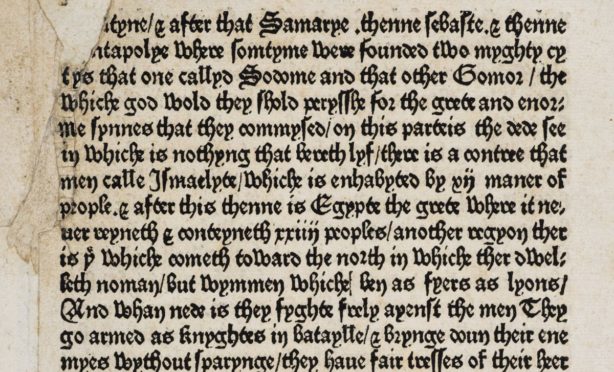 tyne/& after that Samarye .thenne sebaste.& thenne
ntapolye where somtyme were founded two myghty cy
tys that one callyd Sodome and that other Gomor / the
whiche god wold they shold perysshe for the grete and enor⸗
me synnes that they commysed/on this parteis the dede see
in whiche is nothyng that bereth lyf/there is a contree that
men calle Ismaelyte/whiche is enhabyted by xij maner of
people.& after this thenne is Egypte the grete where it ne⸗
uer reyneth & conteyneth xxiiij peoples/another regyon ther
is yͭ whiche cometh toward the north in whiche ther dwel⸗
leth noman/but wymmen whiche ben as fyers as lyons/
And whan nede is they fyghte frely ayenst the men They
go armed as knyghtes in bataylle/& brynge doun their ene
myes wythout sparynge/they haue fair tresses of their heer